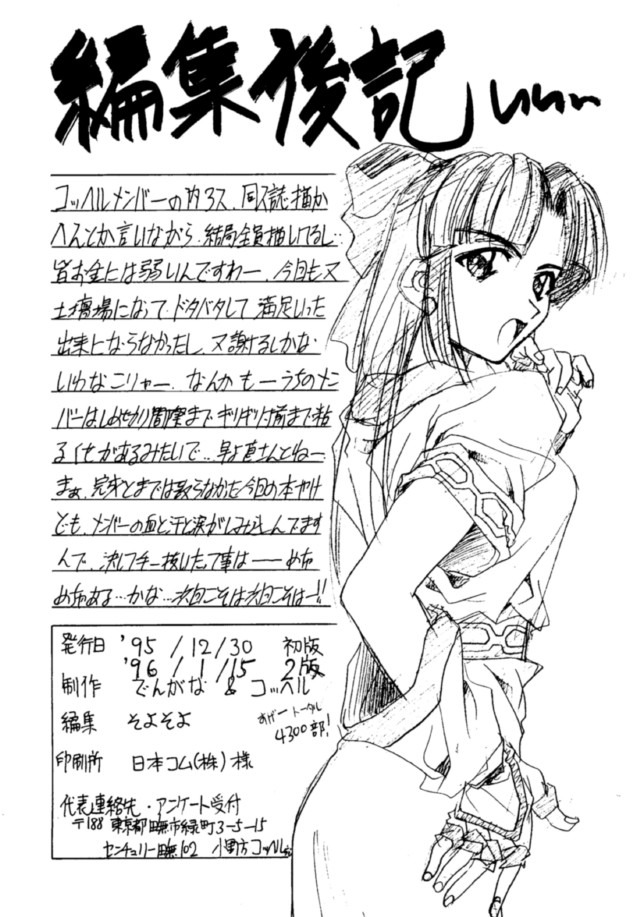 編集後記 いいい
コッヘルメンバーの約3ス、同人誌描か
へんとか言いながら、結局全員描いてるし…
皆お金には弱いんですわー、今回も又
土壇場になって、ドタバタして、満足いった
出来にならなかったし、又謝るしかな
いわなこりゃー、なんかもーうちのメン
バーはしめきり間際までギリギリ寸前まで粘
るくせがあるみたいで…早よ直さんとねー
まぁ、完ペキとまでは至らなかった今回の本やけ
ども、メンバーの血と汗と涙がしみ込んでます
んで、決して手抜したって事は――めちゃ
めちゃある…かな…次回こそは次回こそはー!!
発行日 '95/12/30 初版
'96/1/15 2版
制作 でんがな & コッヘル
編集 そよそよ
おげー トータル
4300部!
印刷所 日本コム(株)様
代表連絡先・アンケート受付
〒188 東京都田無市緑町3-5-15
センチュリー田無102 小野方 コッヘル